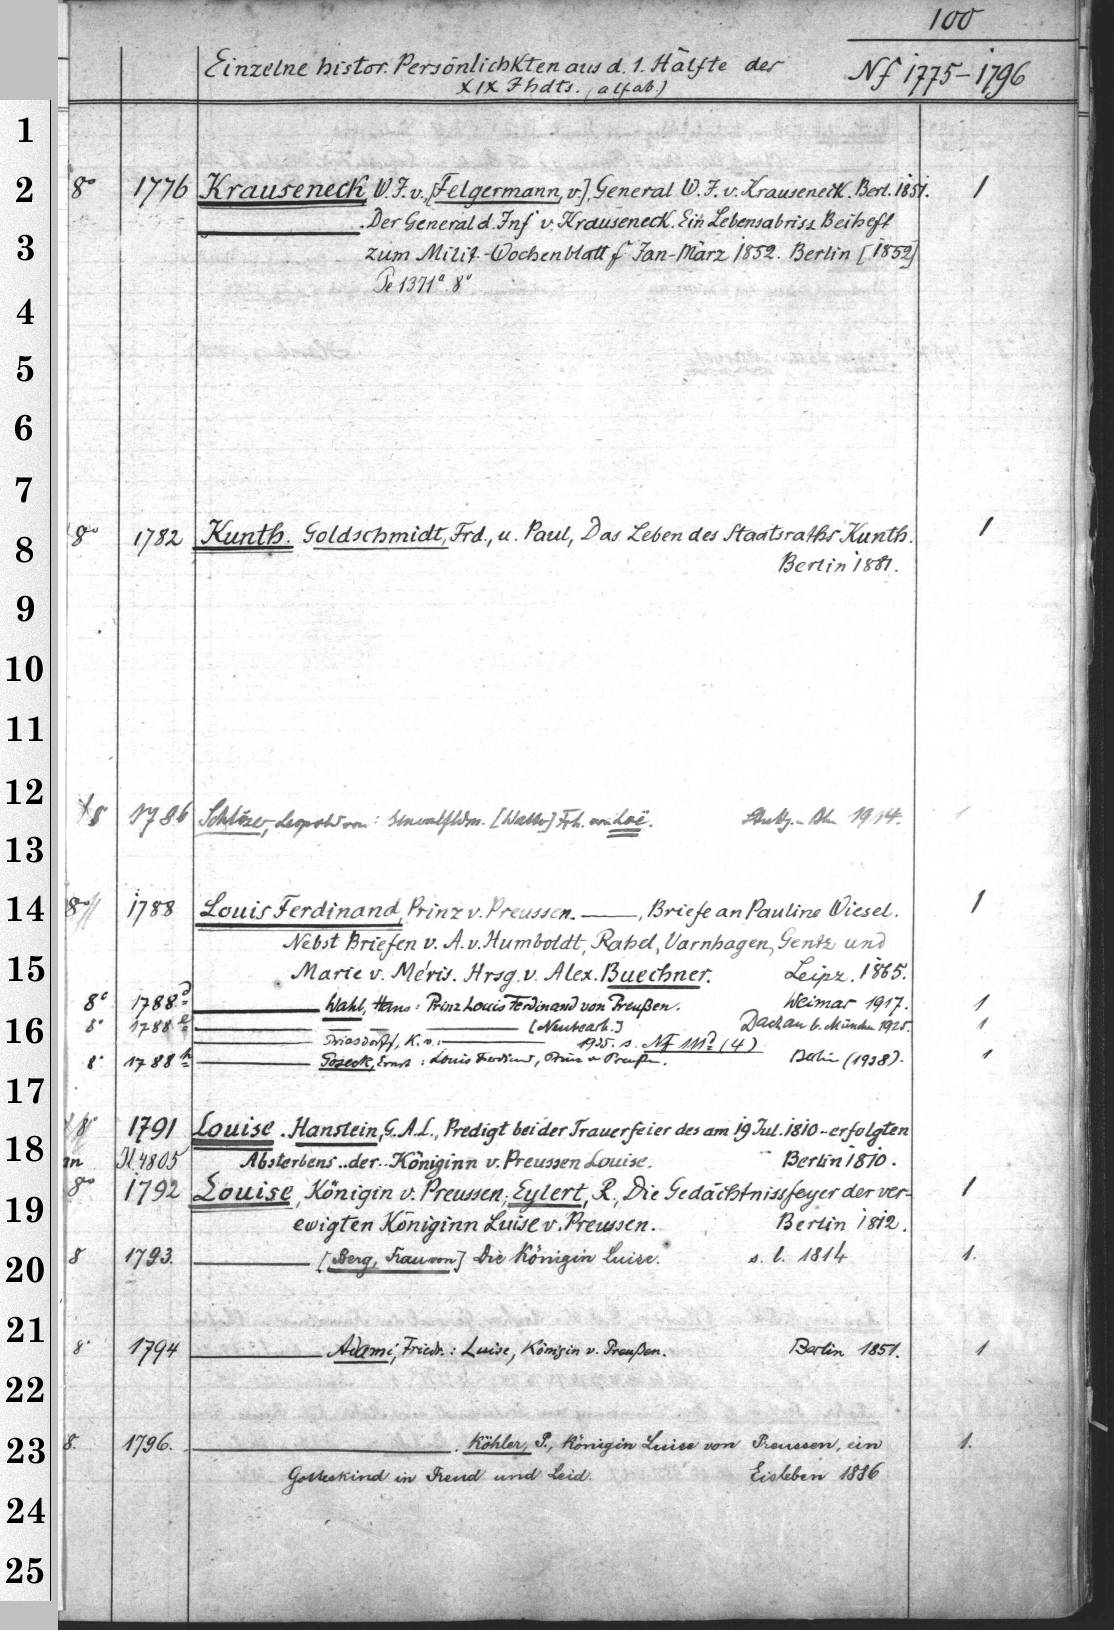 100
Einzelne histor. Persönlichkten aus d. 1. Hälfte des Nf 1775-1796
XIX Jhdts. (alfab.)
1
2 8° 1776 Krauseneck, W.J.v., [Felgermann, v.], General W.J.v. Krauseneck. Berl. 1851. 1
Der General d. Inf v. Krauseneck. Ein Lebensabriss Beiheft
3 zum Milit-Wochenblatt f Jan-März 1852. Berlin [1852]
Pe 1371ᵃ. 8°
4
5
6
7
8 8° 1782 Kunth. Goldschmidt, Frd., u. Paul, Das Leben des Staatsraths Kunth. 1
Berlin 1881.
9
10
11
12 8° 1786 Schlözer, Leopold von: Generalfldm. [Walter] Frh. von Loë. 1914. 1
13
14 8° 1788 Louis Ferdinand, Prinz v. Preussen. ——, Briefe an Pauline Wiesel. 1
Nebst Briefen v. A. v. Humboldt, Rahel, Varnhagen, Gentz und
15 Marie v. Méris. Hrsg. v. Alex. Buechner. Leipz. 1865.
8° 1788ᵈ —— Wahl, Hans: Prinz Louis Ferdinand von Preußen. Weimar 1917. 1
16 8° 1788ᵉ —— — — —— [Neubearb.] Dachau b. München 1925. 1
K. v.: —— 1925. s. (4)
8° 1788ʰ —— Poseck, Ernst: Louis Ferdinand, Prinz v. Preußen. Berlin (1938). 1
17
8° 1791 Louise. Hanstein, G.A.L., Predigt bei der Trauerfeier des am 19 Jul. 1810 erfolgten
18 an 4805 Absterbens..der..Königinn v. Preussen Louise. Berlin 1810.
8° 1792 Louise, Königin v. Preussen, Eylert, R., Die Gedächtnissfeyer der ver- 1
19 ewigten Königinn Luise v. Preussen. Berlin 1812.
20 8 1793. —— [Berg, Frau von] Die Königin Luise. s. l. 1814 1.
21
8° 1794 —— Adami, Friedr.: Luise, Königin v. Preußen. Berlin 1851. 1
22
23 8. 1796. ——. Köhler, P., Königin Luise von Preussen, ein 1.
Gotteskind in Freud und Leid. Eisleben 1886
24
25